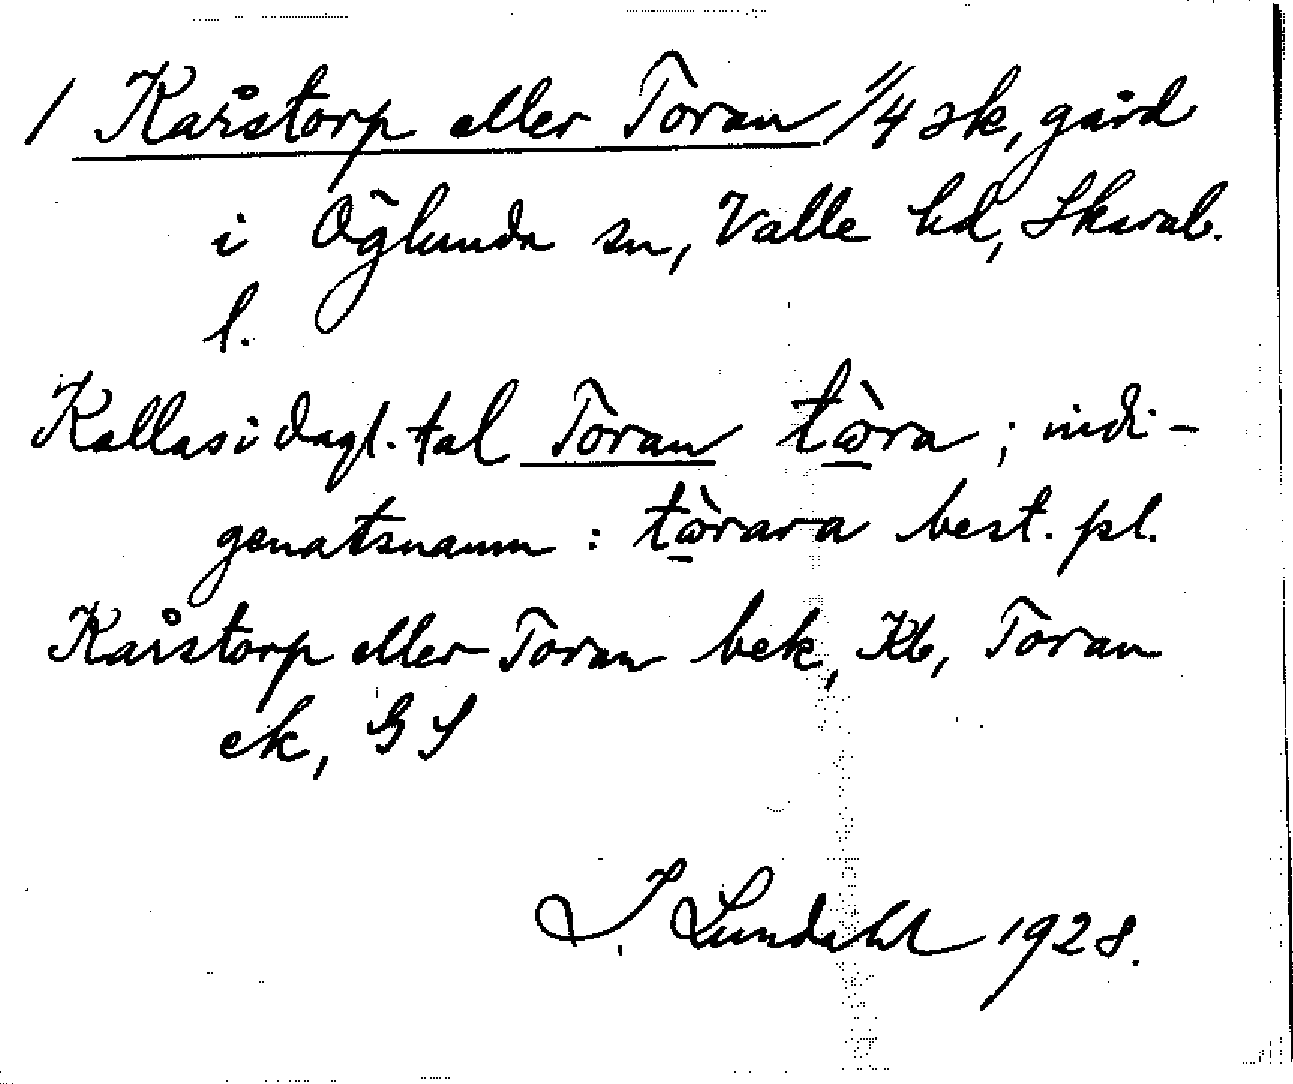 1 Karstorp eller Toran 1/4 sk, gård
i Öglunda sn, Valle hd, Skarab.
l.
Kallas i dagl. tal Toran tὼ̲ra ; indi-
genatsnamn : tὼ̲rara best. pl.
Karstorp eller Toran bek, Kb, Toran
ek, GS
I. Lundahl 1928.